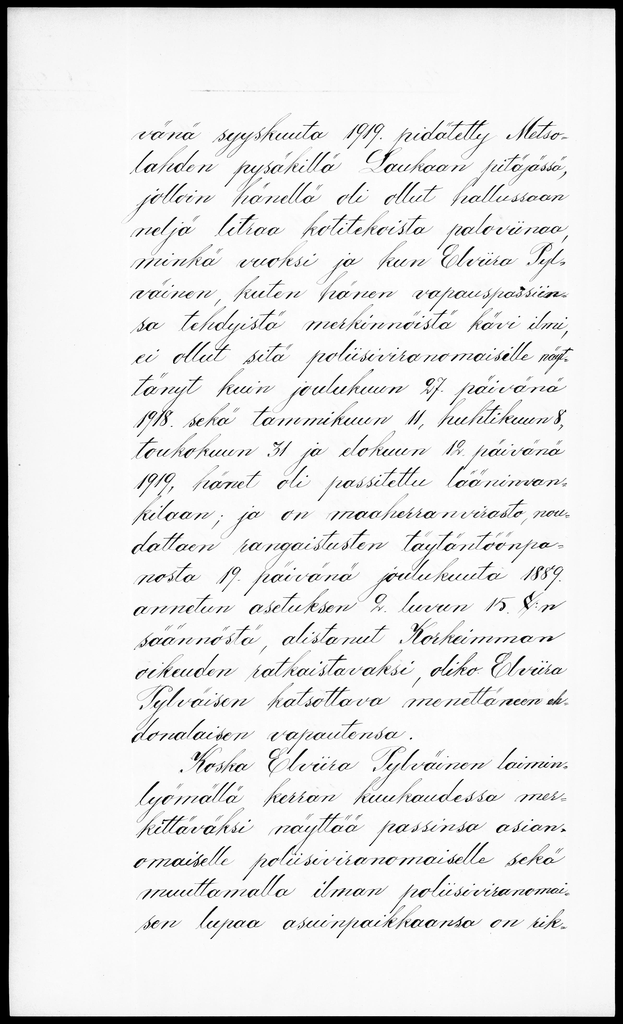 vänä syyskuuta 1919. pidätetty Metso-
lahden pysäkillä Laukaan pitäjässä,
jolloin hänellä oli ollut hallussaan
neljä litraa kotitekoista paloviinaa,
minkä vuoksi ja kun Elviira Pyl-
väinen, kuten hänen vapauspassiin-
sa tehdyistä merkinnöistä kävi ilmi,
ei ollut sitä poliisiviranomaisille näyt-
tänyt kuin joulukuun 27. päivänä
1918. sekä tammikuun 11, huhtikuun 8,
toukokuun 31 ja elokuun 12. päivänä
1919, hänet oli passitettu lääninvan-
kilaan; ja on maaherranvirasto, nou-
dattaen rangaistusten täytäntöönpa-
nosta 19. päivänä joulukuuta 1889.
annetun asetuksen 2. luvun 15. §:n
säännöstä, alistanut Korkeimman
oikeuden ratkaistavaksi, oliko Elviira
Pylväisen katsottava menettäneen eh-
donalaisen vapautensa.
Koska Elviira Pylväinen laimin-
lyömällä kerran kuukaudessa mer-
kittäväksi näyttää passinsa asian-
omaiselle poliisiviranomaiselle sekä
muuttamalla ilman poliisiviranomai-
sen lupaa asuinpaikkaansa on rik-